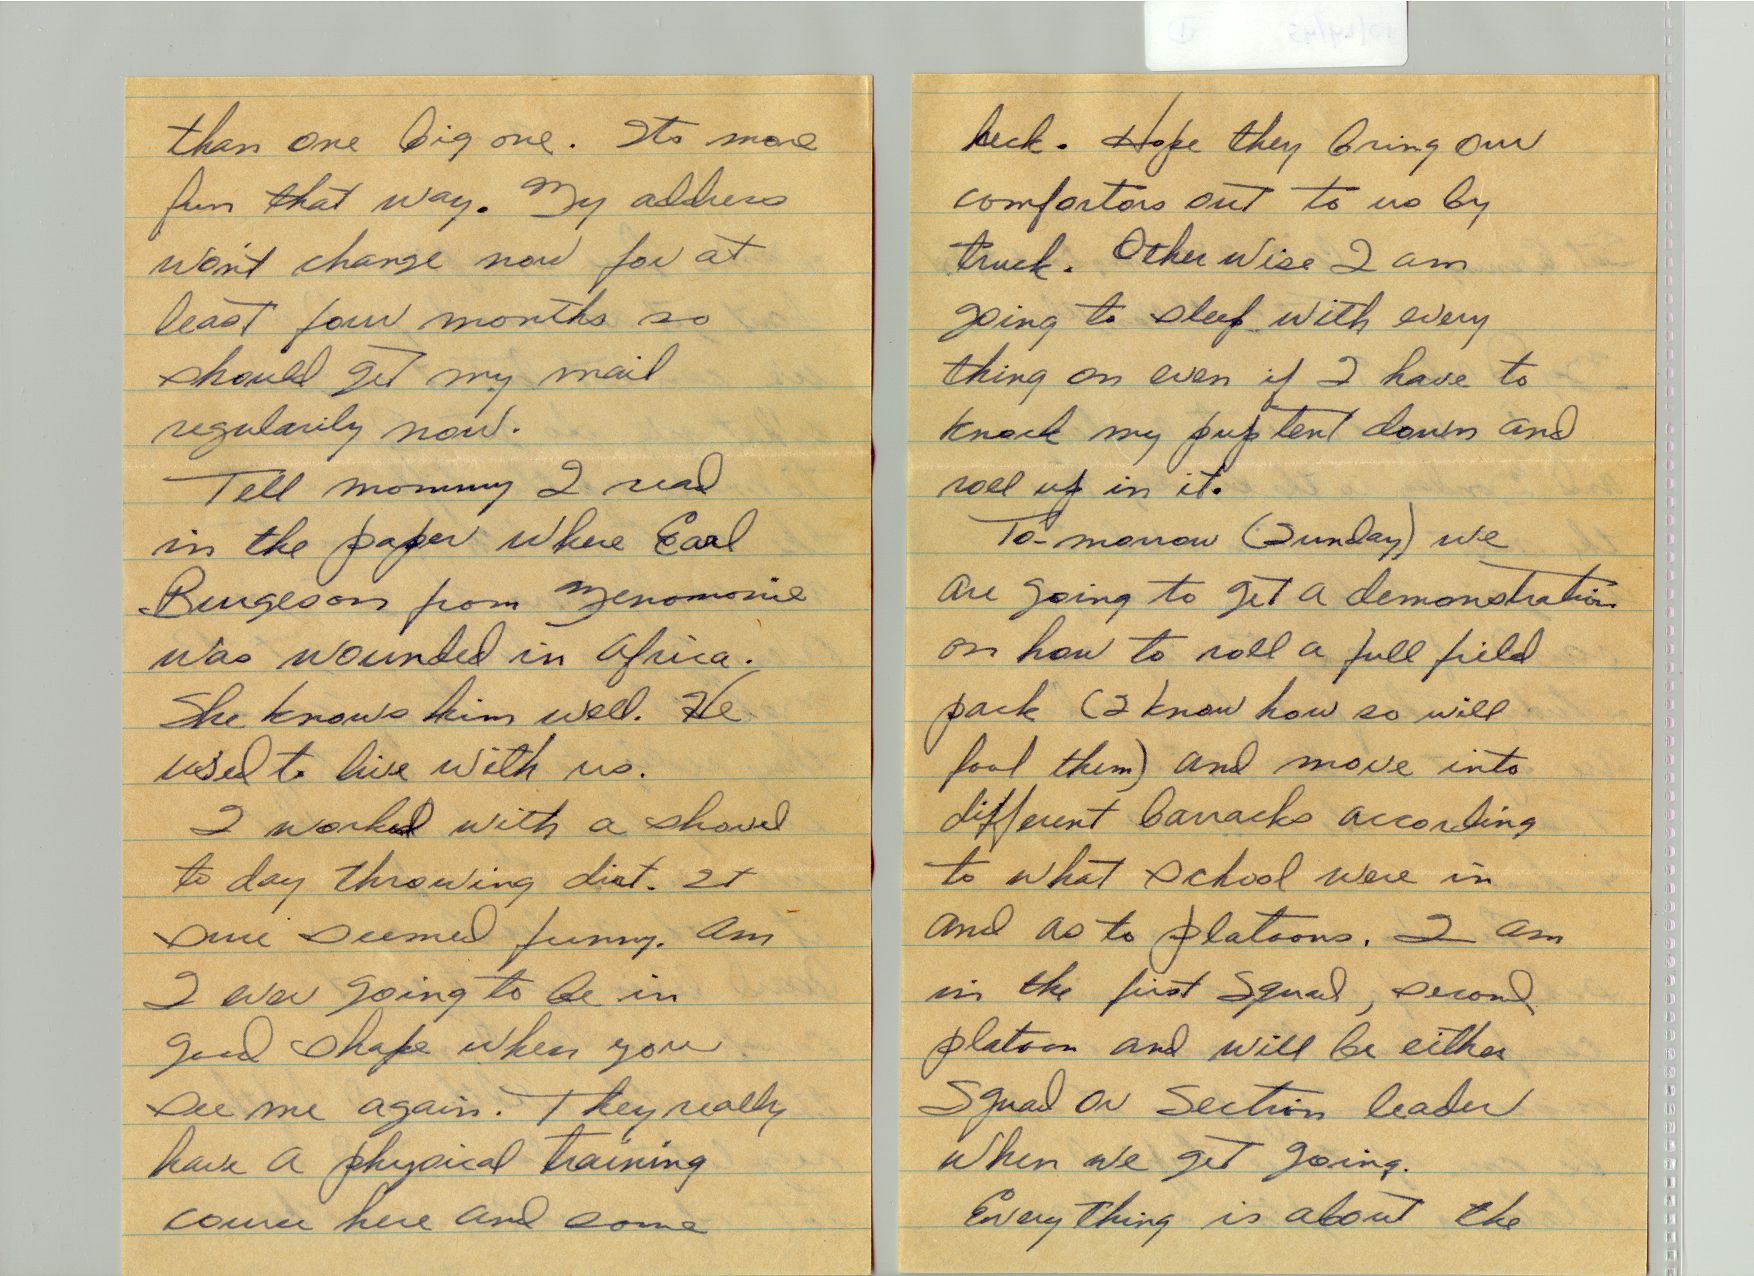 than one big one. Its more
fun that way. My address
won't change now for at
least four months so
should get my mail
regularily now.
Tell mommy I read
in the paper where Earl
Burgeson from Menomonie
was wounded in Africa.
She knows him well. He
used to live with us.
I worked with a shovel
to day throwing dirt. It
sure seemed funny. Am
I ever going to be in
good shape when you
see me again. They really
have a physical training
course here and some
heck. Hope they bring our
comfortors out to us by
truck. Otherwise I am
going to sleep with every
thing on even if I have to
knock my pup tent down and
roll up in it.
To-morrow (Sunday) we
are going to get a demonstration
on how to roll a full field
pack (I know how so will
fool them) and move into
different barracks according
to what school were in
and as to platoons. I am
in the first squad, second
platoon and will be either
Squad or Section leader
when we get going.
Everything is about the